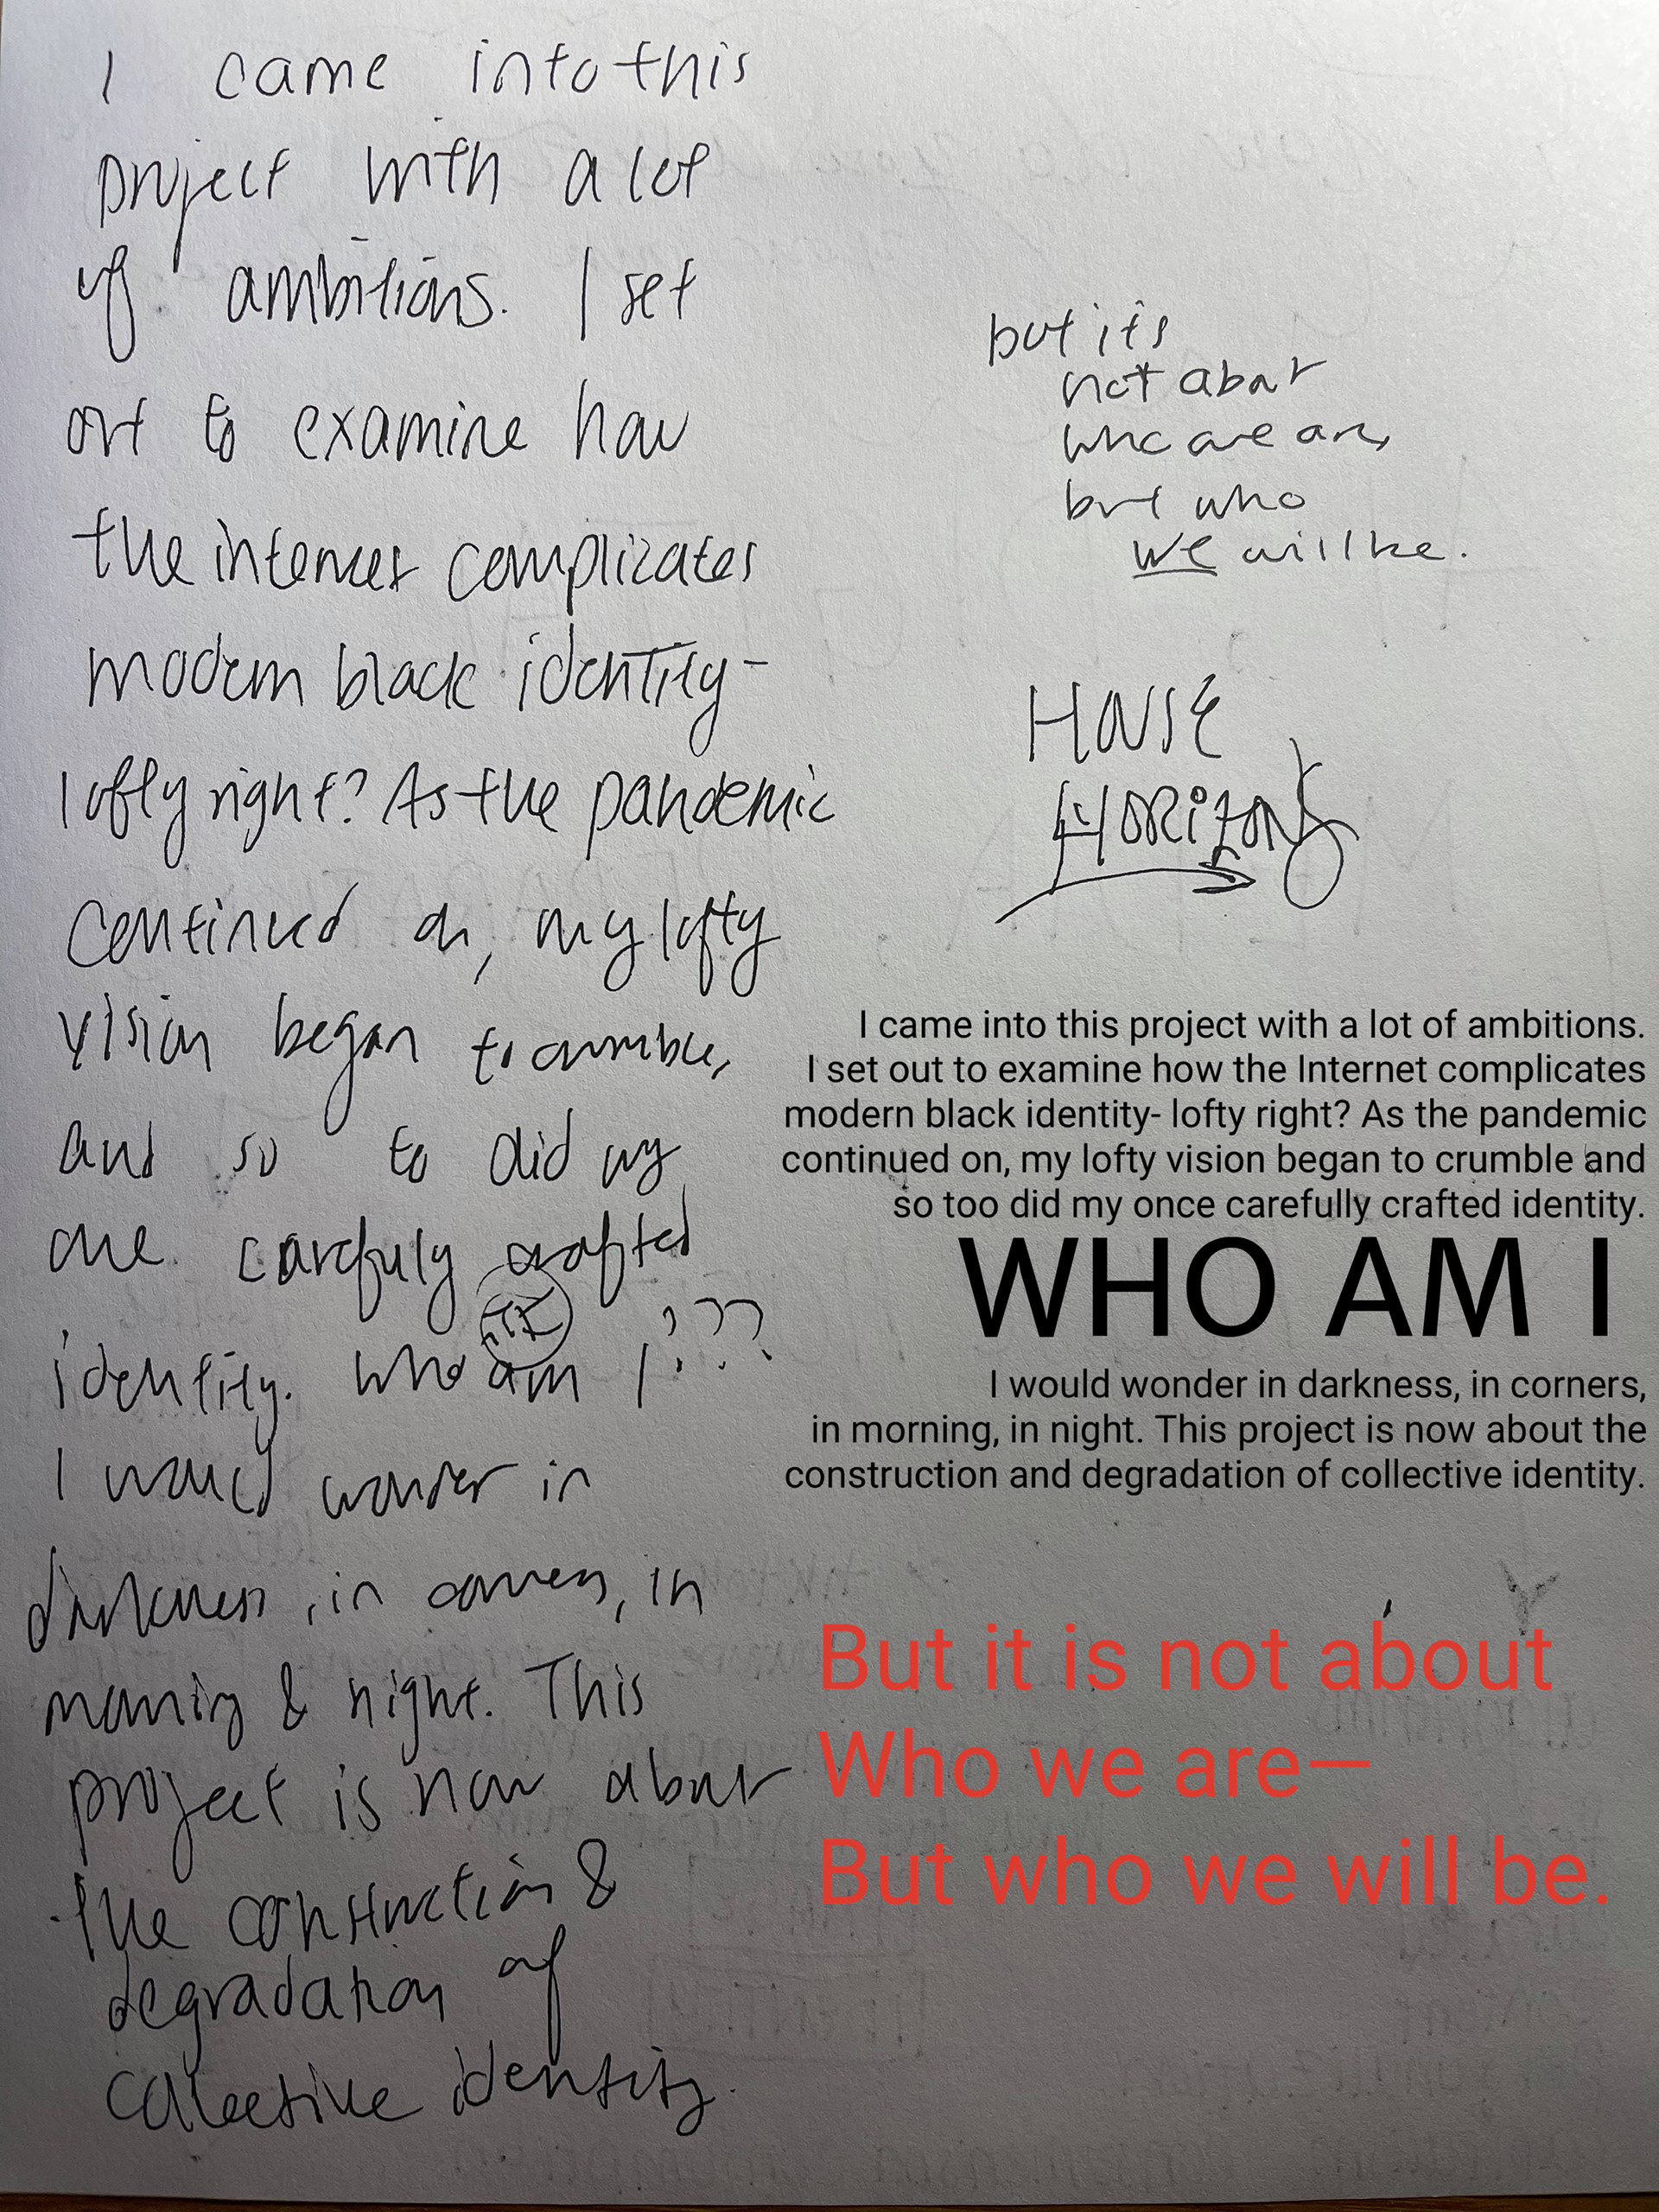 I came into this
project with a lot
of ambitions. I set
out to examine how
the internet complicates
modern black identity-
lofty right? As the pandemic
continued on, my lofty
vision began to crumble,
and so to did my
one carefuly crafted
identity. Who am I???
I would wonder in
darkness, in corners, in
morning & night. This
project is now about
the construction &
degradation of
collective identity.
but it's
not about
who we are,
but who
we will be.
HOUSE
HORIZONS
I came into this project with a lot of ambitions.
I set out to examine how the Internet complicates
modern black identity- lofty right? As the pandemic
continued on, my lofty vision began to crumble and
so too did my once carefully crafted identity.
WHO AM I
I would wonder in darkness, in corners,
in morning, in night. This project is now about the
construction and degradation of collective identity.
But it is not about
Who we are—
But who we will be.